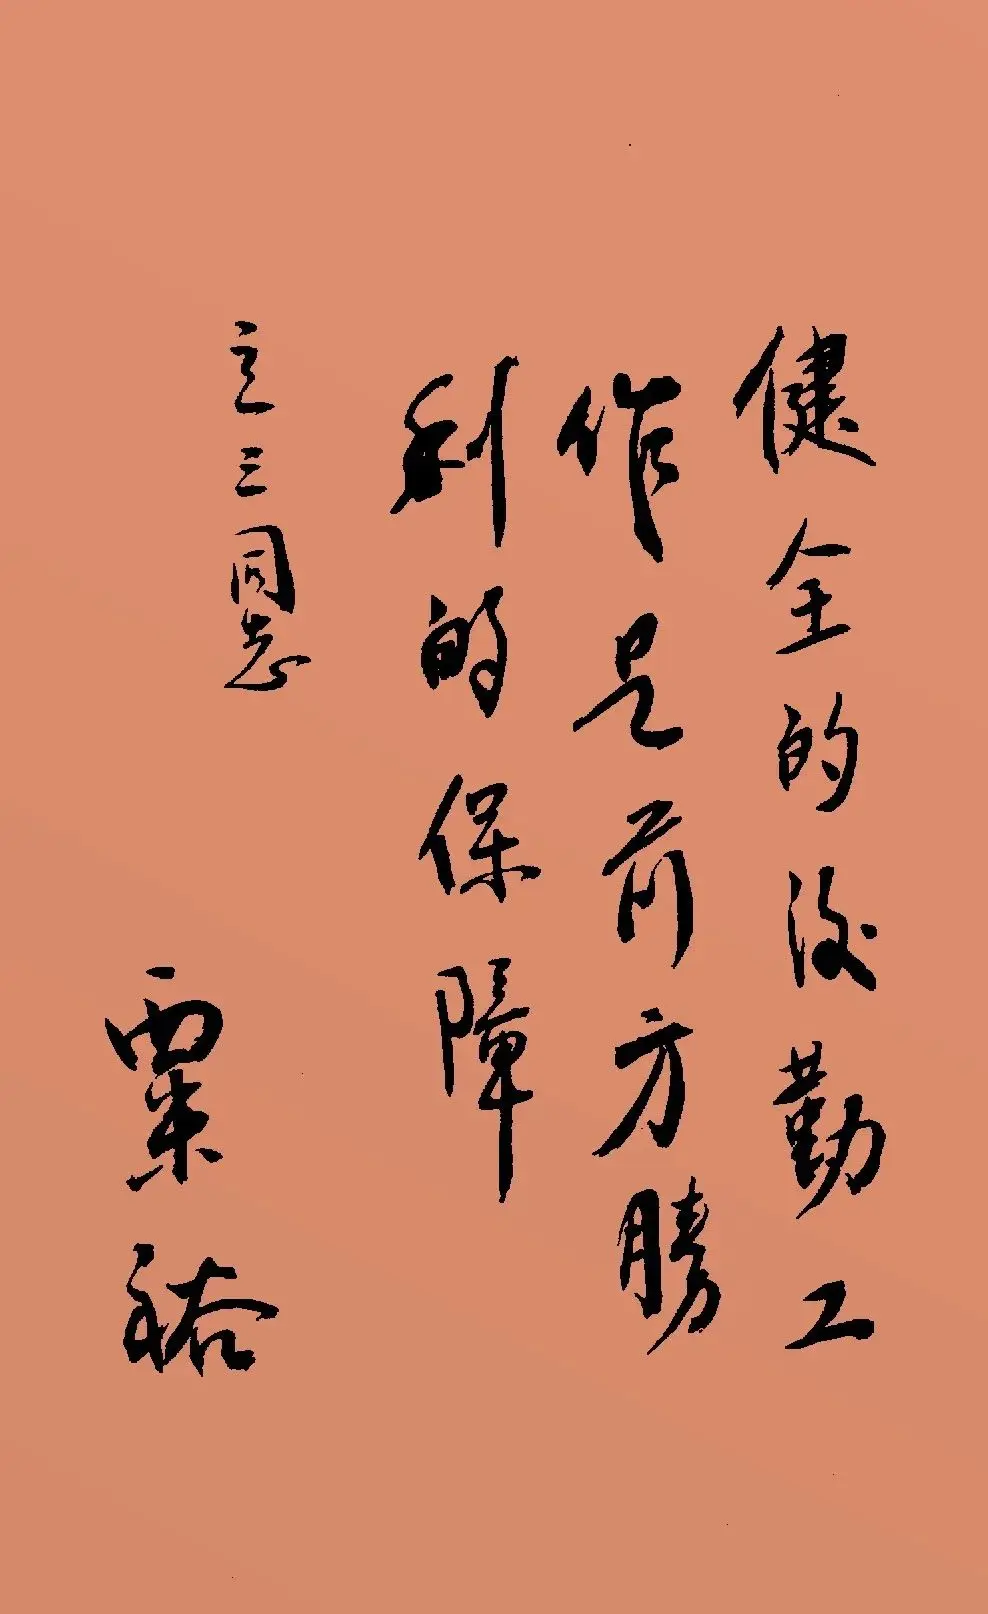 健全的後勤工
作是前方勝
利的保障
立三同志
粟裕